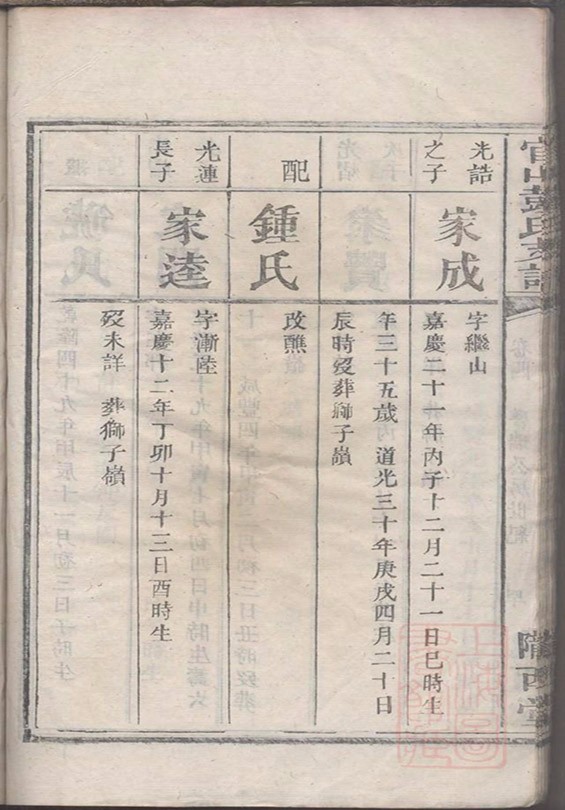 光誥
之子
家成
字繼山
嘉慶二十年丙子十二月二十一日巳時生
年三十五歲 道光三十年庚戌四月二十日
辰時歿葬獅子嶺
配
鍾氏
改醮
光連
長子
家逵
字漸陸
嘉慶十二年丁卯十月十三日酉時生
歿未詳 葬獅子嶺
隴西堂